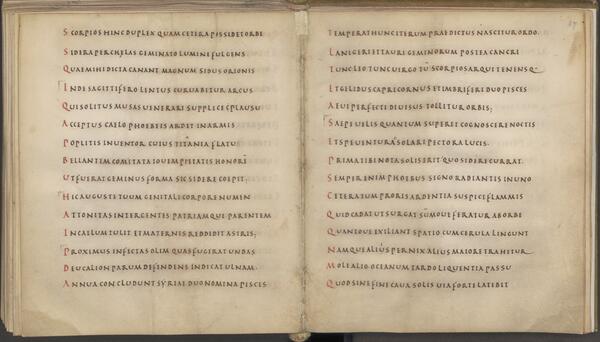 SCORPIOS HINC DUPLEX QUAM CETERA POSSIDET ORBE
SIDERA PER CHELAS GEMINATO LUMINE FULGENS
QUAE MIHI DICTA CANANT MAGNUM SIDUS ORIONIS
INDE SAGITTIFERO LENTUS CURUABITUR ARCUS
QUI SOLITUS MUSAS UENERARI SUPPLICE CPLAUSU
ACCEPTUS CAELO PHOEBEIS ARDET IN ARMIS
POPLITIS INUENTOR CUIUS TITANIA FLATU
BELLANTEM COMITATA IOUEM PIETATIS HONORĒ
UT FUERAT GEMINUS FORMA SIC SIDERE COEPIT
HIC AUGUSTE TUUM GENITALE CORPORE NUMEN
ATTONITAS INTER GENTES PATRIAMQUE PARENTEM
IN CAELUM TULIT ET MATERNIS REDDIDIT ASTRIS
PROXIMUS INFESTAS OLIM QUAS FUGERAT UNDAS
DEUCALION PARUUM DEFENDENS INDICAT ULNAM
ANNUA CONCLUDUNT SYRIAE DUO NOMINA PISCES
TEMPERAT HUNC ITERUM PRAEDICTUS NASCITUR ORDO
LANIGERI ET TAURI GEMINORUM POSTEA CANCRI
TUNC LEO TUNC UIRGO TŪ SCORPIOS ARQUITENENSQ
ET GELIDUS CAPRICORNUS ET IMBRIFER DUO PISCES
AEUI PERFECTI DIUISUS TOLLITUR ORBIS
SAEPE UELIS QUANTUM SUPERET COGNOSCERE NOCTIS
ET SPE UENTURĀ SOLARI PECTORA LUCIS
PRIMA TIBI NOTA SOLIS ERIT QUO SIDERE CURRAT
SEMPER ENIM PHOEBUS SIGNO RADIANTIS IN UNO
CETERA TUM PRORIS ARDENTIA SUSPICE FLAMMIS
QUID CADAT UT SURGAT SŪMOUE FERATUR AB ORBE
QUANTOUE EXILIANT SPATIO CUM CERULA LINGUNT
NAMQUE ALIUS PERNIX ALIUS MAIORE TRAHETUR
MOLE ALIO OCEANUM TARDO LIQUENTIA PASSU
QUOD SINE FINE CAUA SOLIS UIA FORTE LATEBIT